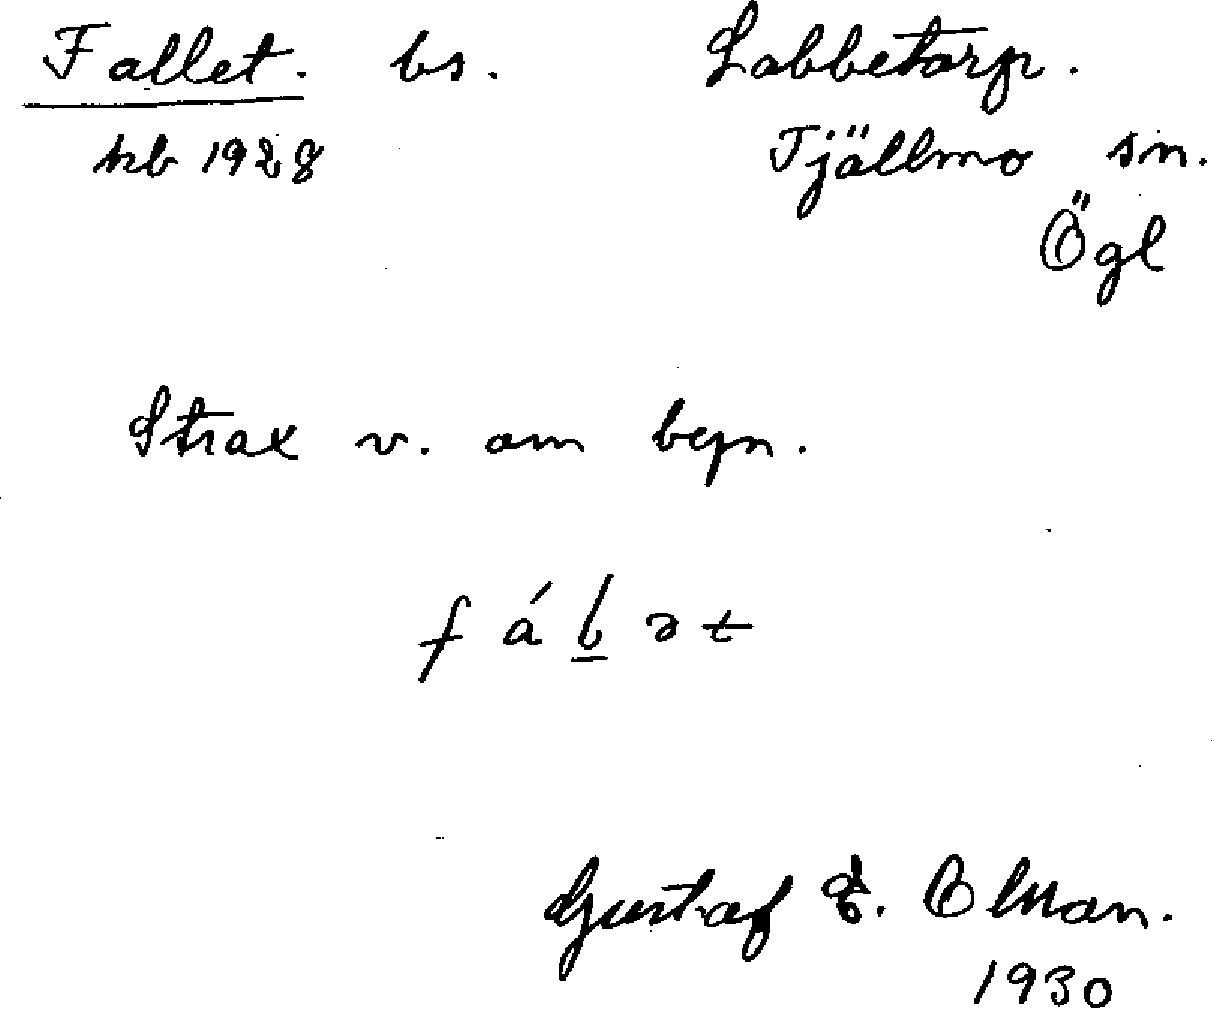 Fallet. bs. Labbetorp.
kb 1928 Tjällmo sn.
Ögl
Strax v. om byn.
f á l ə t
Gustaf E. Olsson.
1930